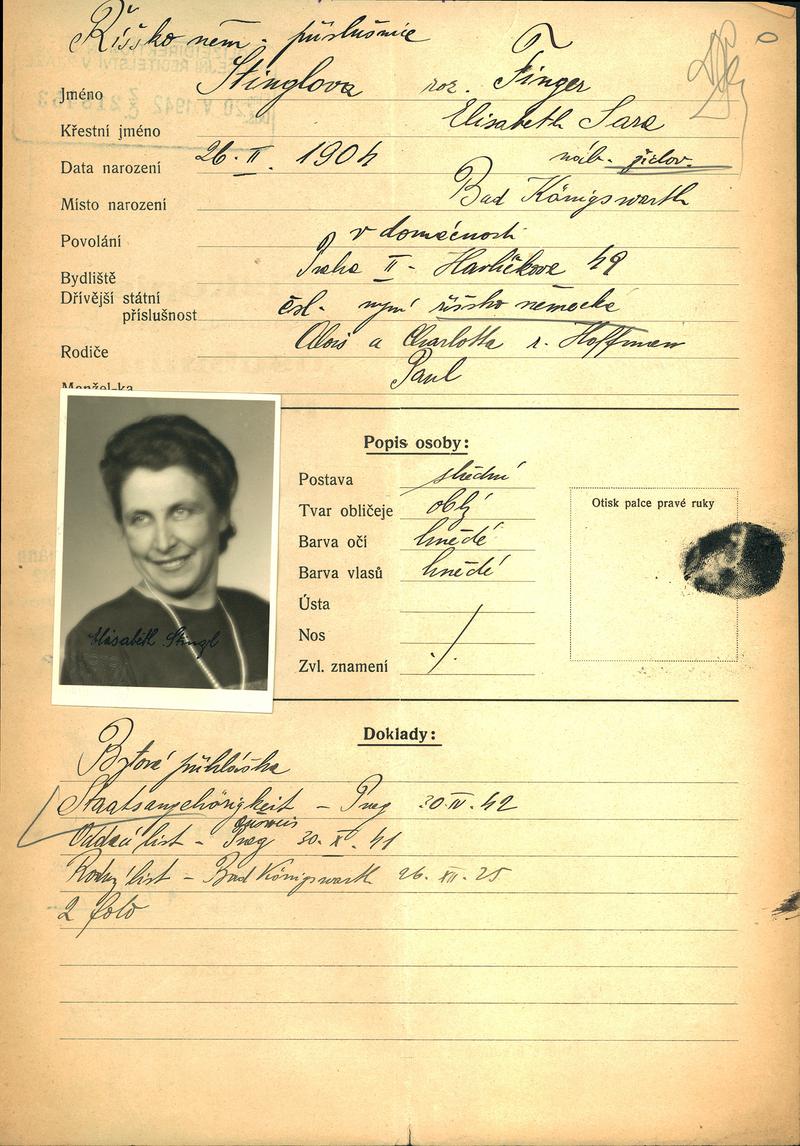 Říšsko něm. příslušnice
Jméno Stinglova roz. Finger
Křestní jméno Elisabeth Sara
Data narození 26. II. 1904 náb. židov.
Místo narození Bad Königswarth
Povolání v domácnosti
Bydliště Praha II - Havlíčkova 49
Dřívější státní
příslušnost čsl. nyní říšsko německá
Rodiče Alois a Charlotta r. Hoffman
Manžel-ka Paul
Popis osoby:
Postava střední
Tvar obličeje oblý
Barva očí hnědé
Barva vlasů hnědé
Ústa
Nos
Zvl. znamení
Otisk palce pravé ruky
Elisabeth Stingl
Doklady:
Bytová přihláška
Staatsangehörigkeit - Prag 30. IV. 42
Oddací list - Prag 30. XI. 41
Rodný list - Bad Königswarth 26. XII. 25
2 foto